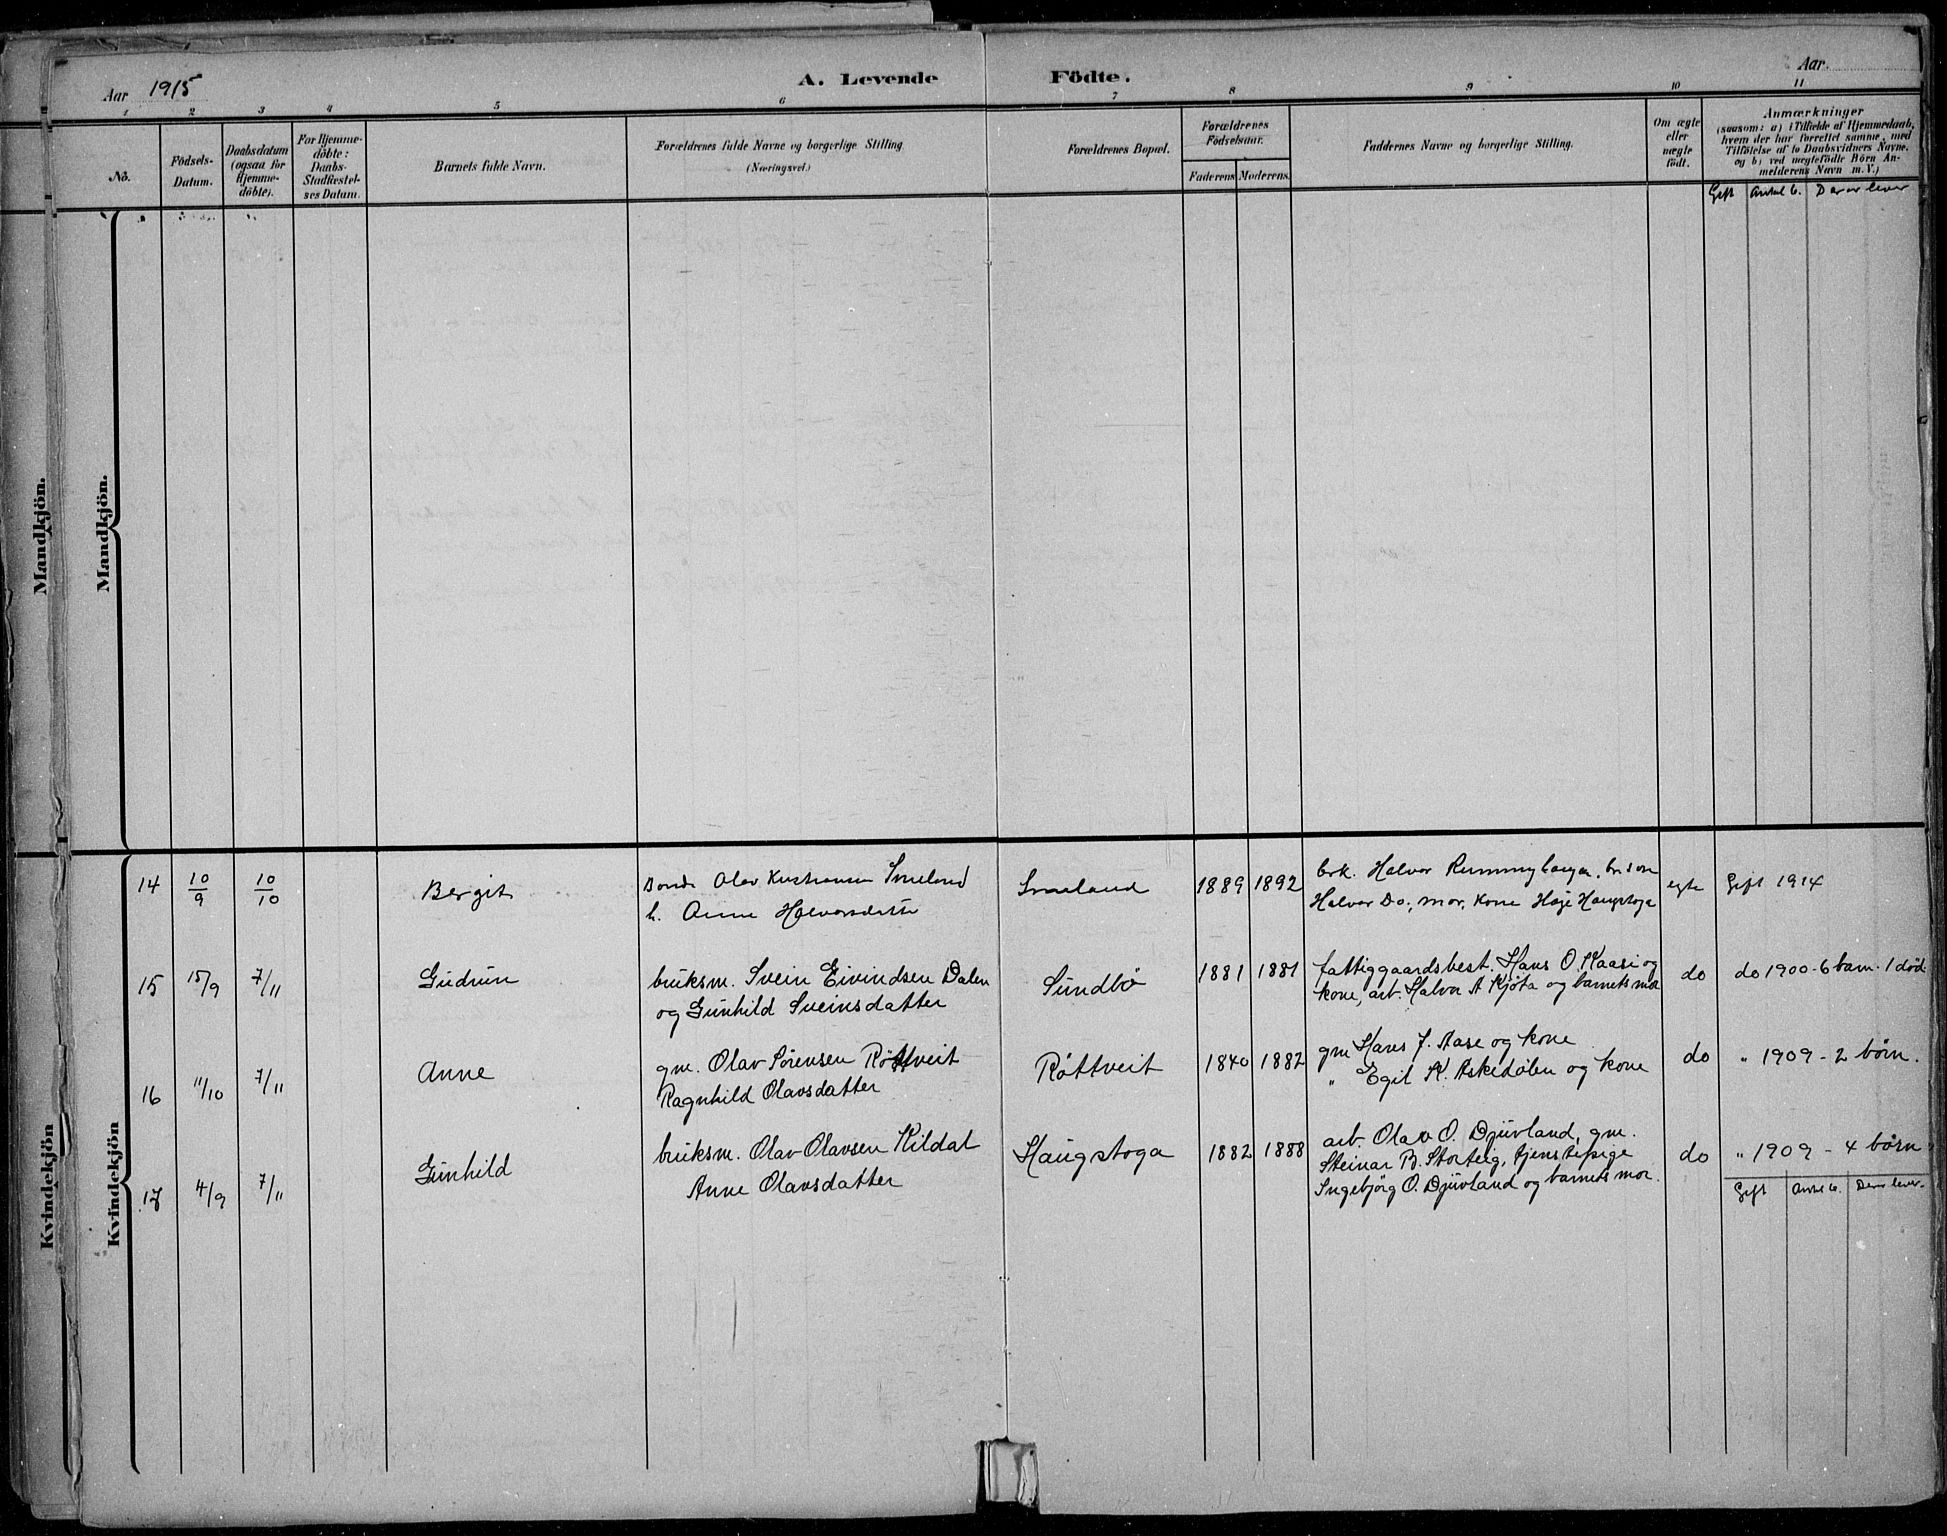 Aar 1915
A. Levende Födte.
Aar
1 2 3 4 5 6 7 8 9 10 11
No.
Födsels-Datum.
Daabsdatum (ogsaa for Hjemme-döbte).
For Hjemme-döbte: Daabs-Stadfæstel-ses Datum.
Barnets fulde Navn.
Forældrenes fulde Navne og borgerlige Stilling (Næringsvei.)
Forældrenes Bopæl.
Forældrenes Födselsaar.
Faderens Moderens.
Faddernes Navne og borgerlige Stilling.
Om ægte eller uægte födt.
Anmærkninger
(saasom: a) i Tilfælde af Hjemmedaab, hvem der har forrettet samme, med Tilföielse af to Daabsvidners Navne, og b) ved uægtefödte Börn An-melderens Navn m. V.)
Gift Antal b. Derav lever
Mandkjön.
Mandkjön.
Kvindekjön
Kvindekjön
14 10/9 10/10 Bergit
Olav Smeland
h. Anne Halvorsdatter
Smeland 1889 1892
brk. Halvor
Halvor Do., mor, kone Haugstoga
egte Gift 1914
15 15/9 7/11 Gudrun
bruksm. Svein Eivindsen Dalen
og Gunhild Sveinsdatter
Sundbø 1881 1881
fattiggaardsbest. Hans O. Kaasi og
kone, arb. Halvor A Kjøta og barnets mor
do do 1900 - 6 barn - 1 død
16 11/10 7/11 Anne
gm. Olav Sørensen Røttveit
Ragnhild Olavsdatter
Røttveit 1840 1882
gm Hans J. Aase og kone
" Egil K. Askedalen og kone
do " 1909 - 2 børn.
17 4/9 7/11 Gunhild
bruksm. Olav Olavsen Kildal
Anne Olavsdatter
Haugstoga 1882 1888
arb. Olav O. Djuvland, gm.
Steinar B. Storteig, tjenstepige
Ingebjørg O. Djuvland og barnets mor.
do " 1909 - 4 børn
Gift Antal b. Derav lever.